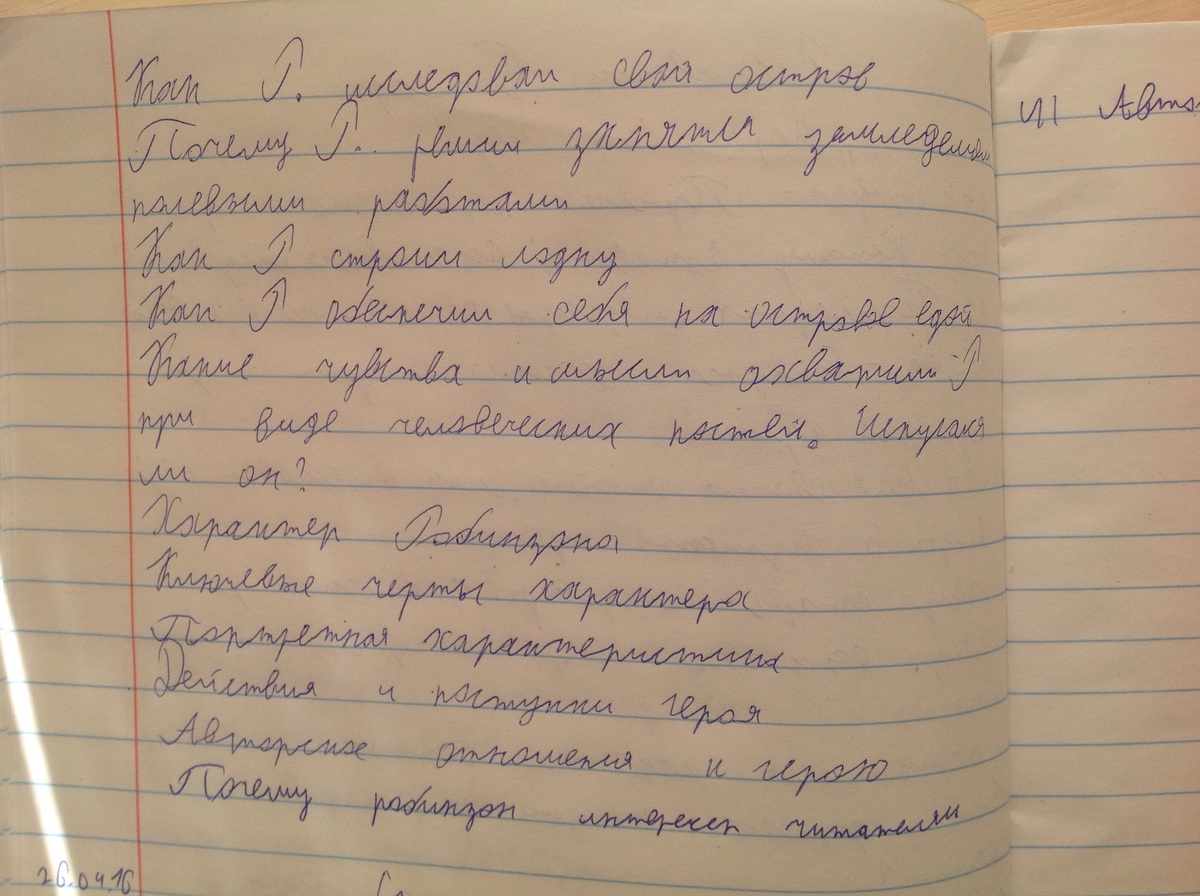 Как Р. исследовал свой остров
Почему Р. решил заняться земледелием
полевыми работами
Как Р строил лодку
Как Р обеспечил себя на острове едой
Какие чувства и мысли охватили Р
при виде человеческих костей. Испугался
ли он?
Характер Робинзона
Ключевые черты характера
Портретная характеристика
Действия и поступки героя
Авторское отношения к герою
Почему робинзон интересен читателям
26.04.16